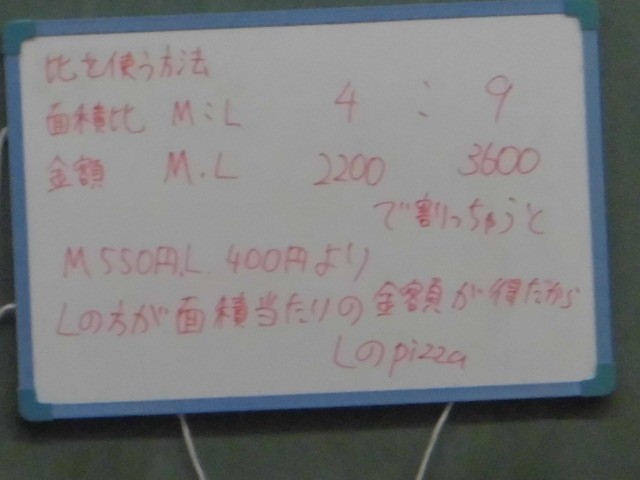 比を使う方法
面積比 M:L 4 : 9
金額 M.L 2200 3600
で割っちゃうと
M550円.L 400円より
Lの方が面積当たりの金額が得だから
Lのpizza